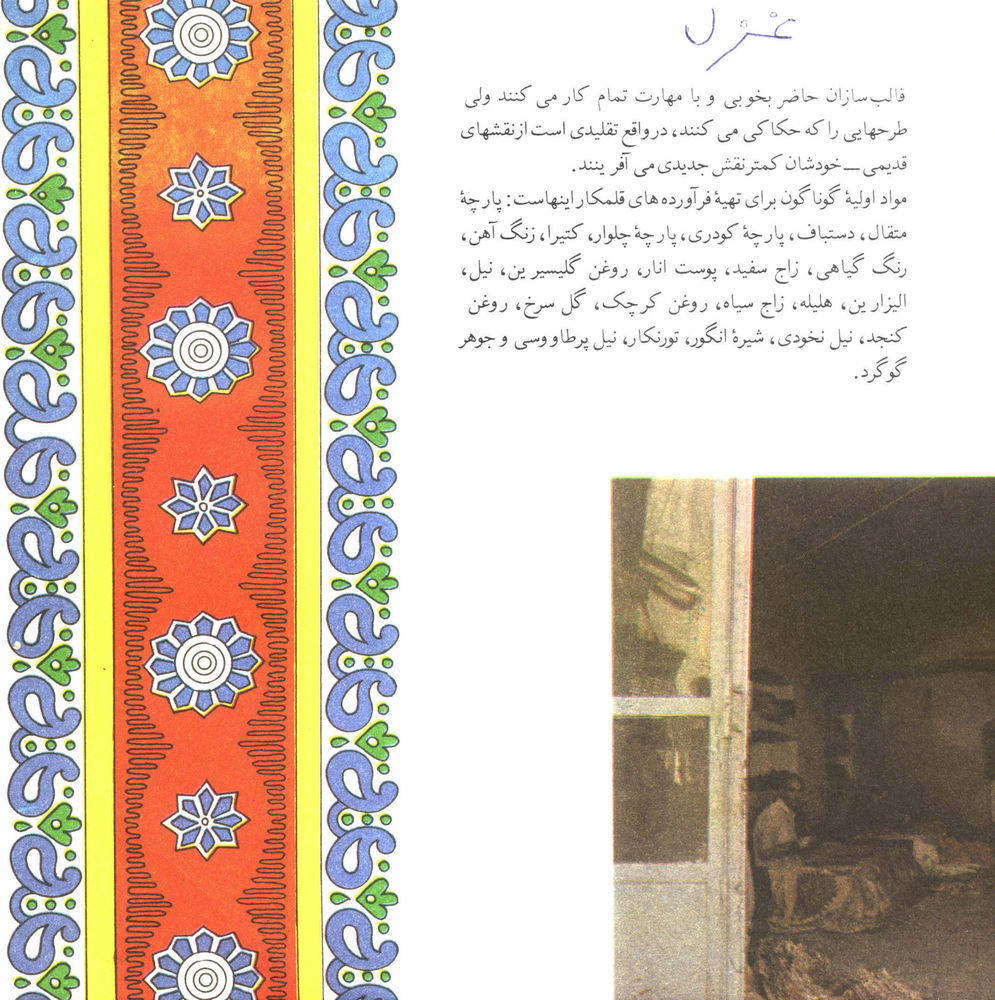 غزل
قالب‌سازان حاضر بخوبی و با مهارت تمام کار می کنند ولی
طرحهایی را که حکاکی می کنند، در واقع تقلیدی است از نقشهای
قدیمی — خودشان کمتر نقش جدیدی می آفرینند.
مواد اولیهٔ گوناگون برای تهیهٔ فرآورده های قلمکار اینهاست: پارچهٔ
متقال، دستباف، پارچهٔ کودری، پارچهٔ چلوار، کتیرا، زنگ آهن،
رنگ گیاهی، زاج سفید، پوست انار، روغن گلیسیرین، نیل،
الیزارین، هلیله، زاج سیاه، روغن کرچک، گل سرخ، روغن
کنجد، نیل نخودی، شیرهٔ انگور، تورنکار، نیل پرطاووسی و جوهر
گوگرد.